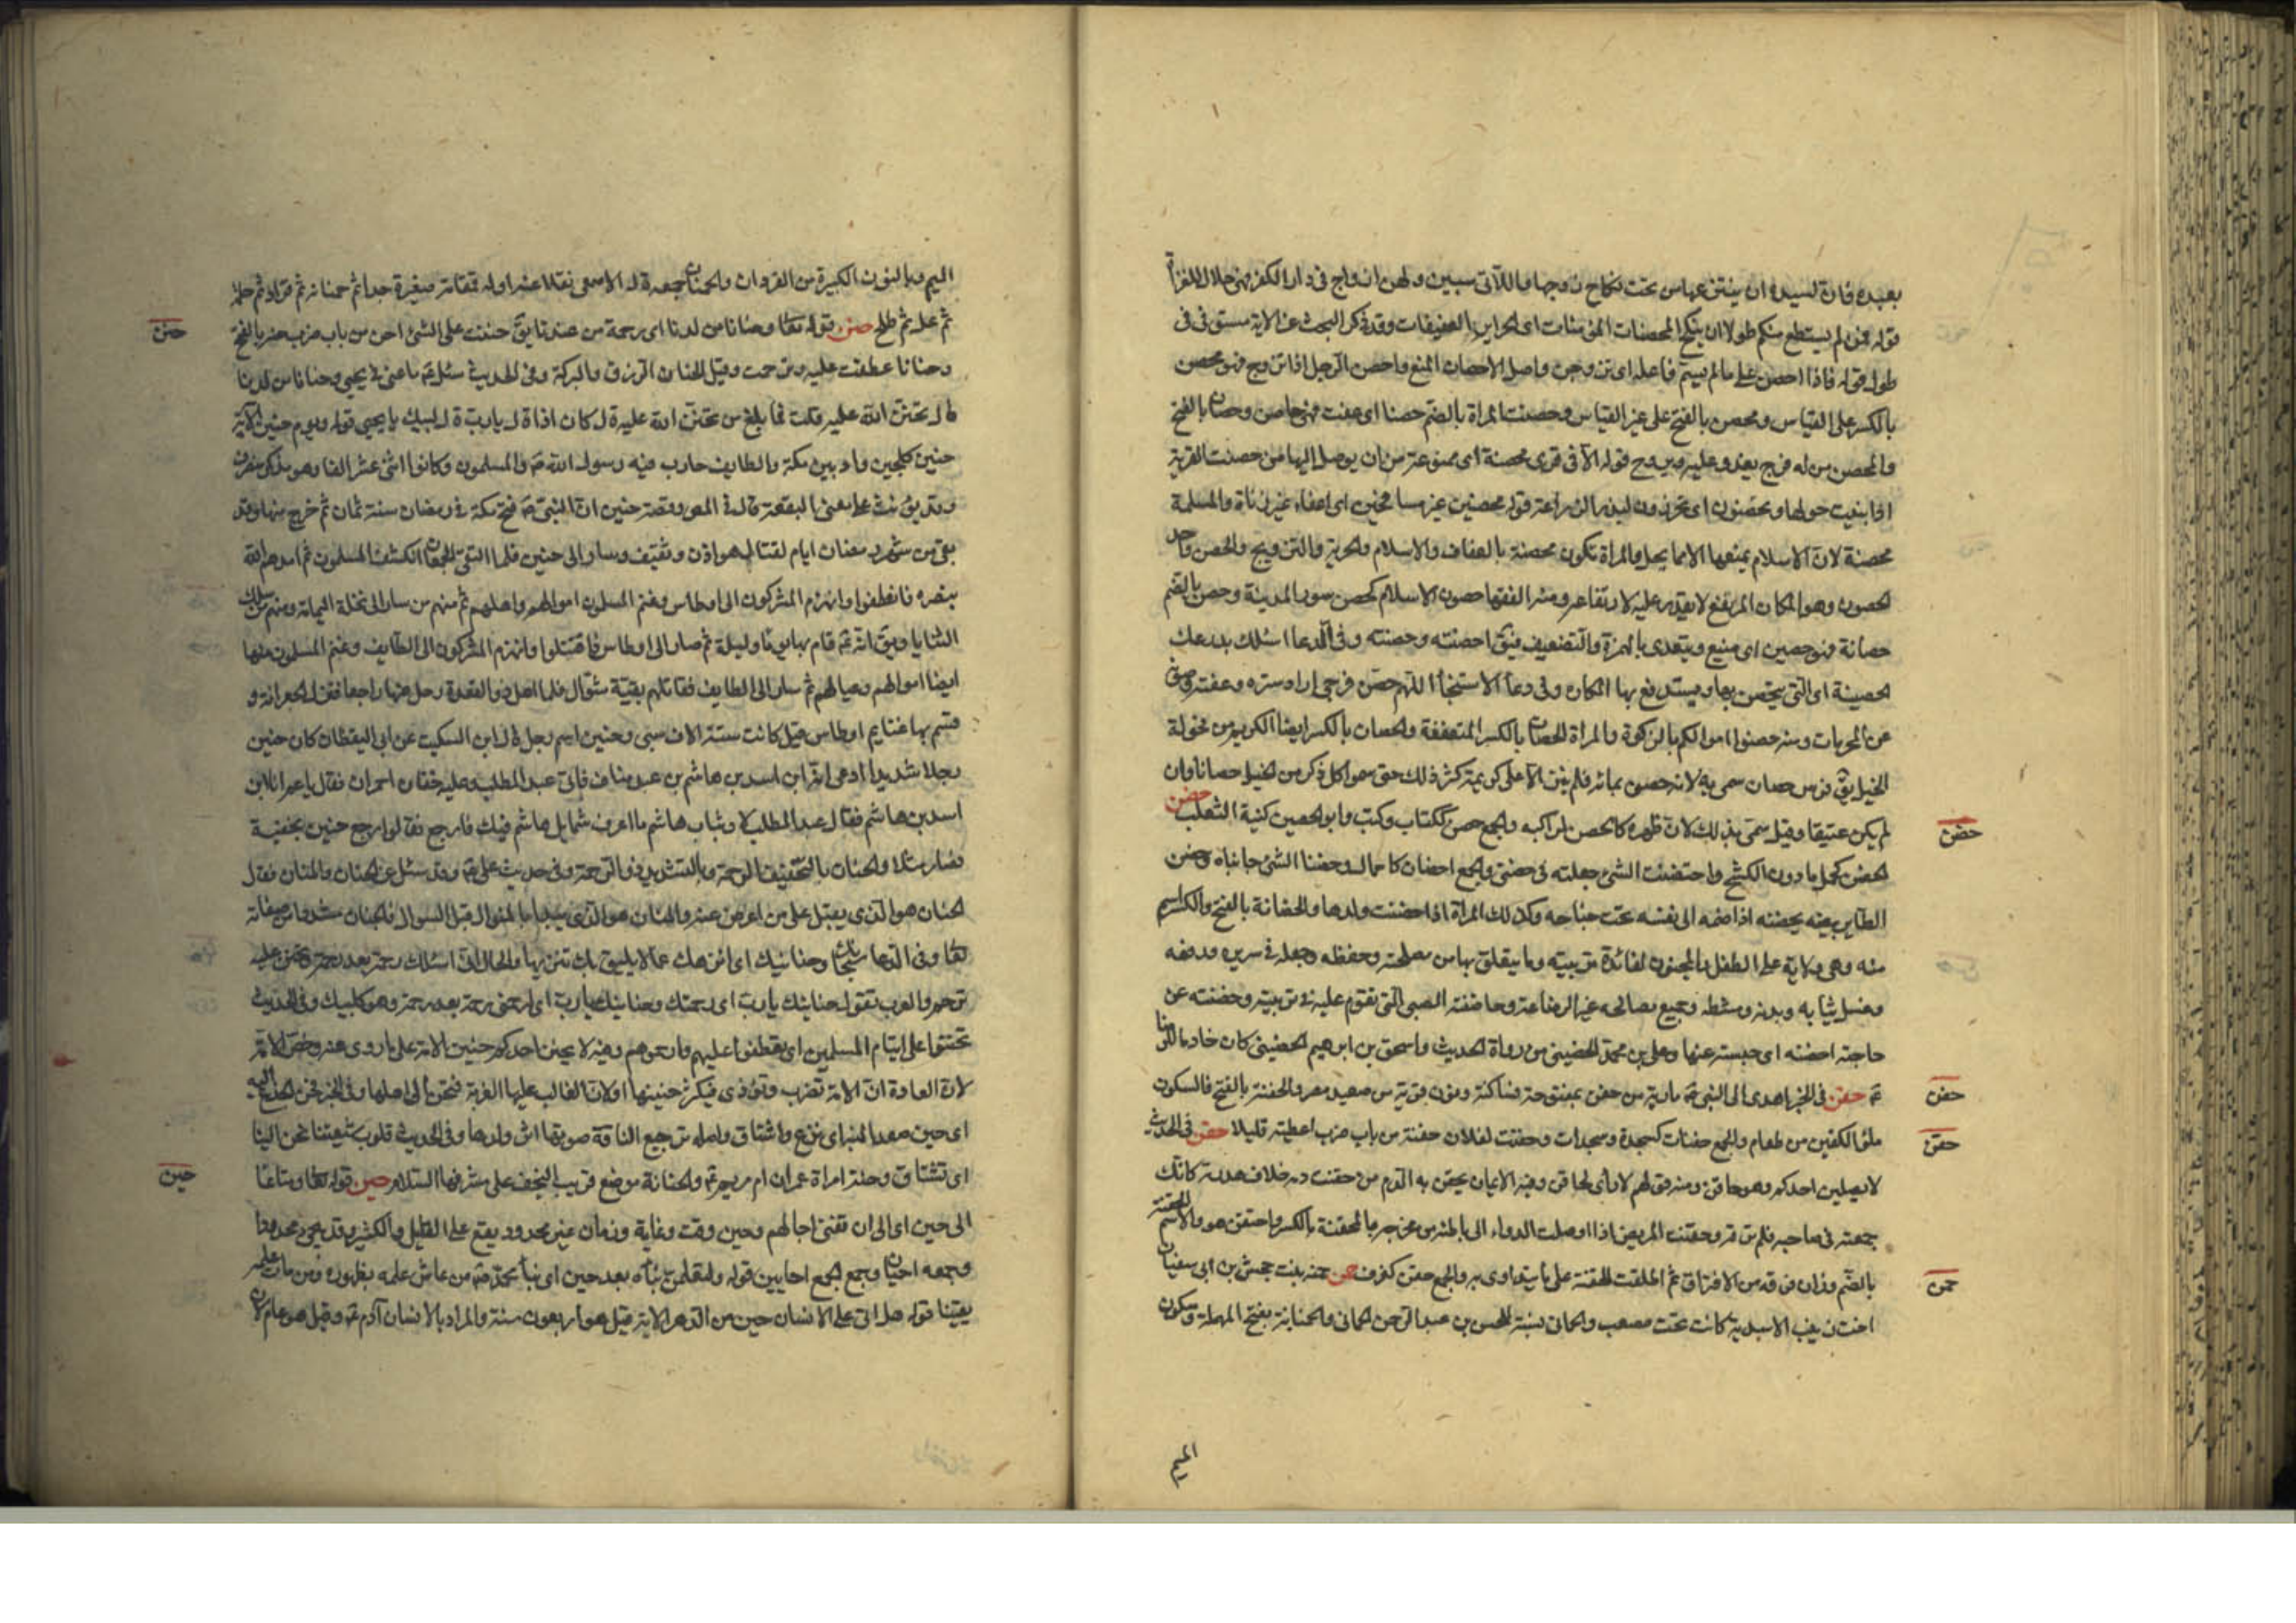 بعبده فان لسيده ان ينتزعها من تحت نكاح زوجها واللاتى سبين ولهن ازواج فى دار الكفر فهن حلال للغزاة
قوله فمن لم يستطع منكم طولا ان ينكح المحصنات المؤمنات اى الحراير العفيفات وقد ذكر البحث عن الاية مستوفى فى
طول قوله فاذا احصن على ما لم يسم فاعله اى تزوجن واصل الاحصان المنع واحصن الرجل اذا تزوج فهو محصن
بالكسر على القياس ومحصن بالفتح على غير القياس وحصنت المراة بالضم حصنا اى عفت فهى حاصن وحصان بالفتح
والمحصن من له فرج يغدو عليه ويروح قوله الا فى قرى محصنة اى ممنوعة من ان يوصل اليها من حصنت القرية
اذا بنيت حولها وتحصنون اى تحرزون لبذر الزراعة قوله محصنين غير مسافحين اى اعفاء غير زناة والمسلمة
محصنة لان الاسلام يمنعها الا مما يحل والمراة تكون محصنة بالعفاف والاسلام والحرية والتزويج والحصن واحد
الحصون وهو المكان المرتفع لا يقدر عليه لارتفاعه ومنه الفقها حصون الاسلام كحصن سور المدينة وحصن بالضم
حصانة فهو حصين اى منيع ويتعدى بالهمزة والتضعيف فيق احصنته وحصنته وفى الدعا اسئلك بدرعك
الحصينة اى التى يتحصن بها ويستدفع بها المكاره وفى دعا الاستنجا اللهم حصن فرجى اراد ستره وعفته وصونه
عن المحرمات ومنه حصنوا اموالكم بالزكوة والمراة الحصان بالكسر المتعففة والحصان بالكسر ايضا الكريم من فحولة
الخيل يق فرس حصان سمى به لانه حصون بمائه فلم ينز الا على كريمة ثم كثر ذلك حتى سموا كل ذكر من الخيل حصانا وان
لم يكن عتيقا وقيل سمى بذلك لان ظهره كالحصن لراكبه والجمع حصن ككتاب وكتب وابو الحصين كنية الثعلب حضن
الحضن كحمل ما دون الكشح واحتضنت الشئ جعلته فى حضنى والجمع احضان كاحمال وحضنا الشئ جانباه وحضن
الطاير بيضه يحضنه اذا ضمه الى نفسه تحت جناحه وكذلك المراة اذا احضنت ولدها والحضانة بالفتح والكسر اسم
منه وهى ولاية على الطفل والمجنون لفائدة تربيته وما يتعلق بها من مصلحته وحفظه وجعله فى سريره ورفعه
وغسل ثيابه وبدنه ومشطه وجميع مصالحه غير الرضاعة وحاضنة الصبى التى تقوم عليه فى تربيته وحضنته عن
حاجته احضنه اى حبسته عنها وعلى بن محمد الحضينى من رواة الحديث واسحق بن ابرهيم الحضينى كان خادما للرضا
ع حفن فى الخبر اهدى الى النبى ص مارية من حفن بمفتوحة فساكنة ونون قرية من صعيد مصر والحفنة بالفتح فالسكون
ملؤ الكفين من طعام والجمع حفنات كسجدة وسجدات وحفنت لفلان حفنة من باب ضرب اعطيته قليلا حقن فى الحديث
لا يصلين احدكم وهو حاقن ومنه قولهم لا راى لحاقن وفيه الايمان يحقن به الدم من حقنت دمه خلاف هدرته كانك
جمعته فى صاحبه فلم ترقه وحقنت المريض اذا اوصلت الدواء الى باطنه من مخرجه بالمحقنة بالكسر واحتقن هو والاسم الحقنة
بالضم وزان فرقة من الافتراق ثم اطلقت الحقنة على ما يتداوى به والجمع حقن كغرف حمن حمنه بنت جحش بن ابى سفيان
اخت زينب الاسدية كانت تحت مصعب والحمانى نسبة للحسن بن عبد الرحمن الحمانى والحمنانة بفتح المهملة وسكون
حضن
حفن
حقن
حمن
الميم
الميم وبالنون الكبيرة من القردان والحمنان جمعه ق ل الاصمعى نقلا عنه اوله قمقامة صغيرة جدا ثم حمنانة ثم قراد ثم حلمة
ثم عل ثم طلح حنن قوله تعا وحنانا من لدنا اى رحمة من عندنا يق حننت على الشئ احن من باب ضرب حنة بالفتح
وحنانا عطفت عليه وترحمت وقيل الحنان الرزق والبركة وفى الحديث سئل ع ما عنى فى يحيى وحنانا من لدنا
ق ل تحنن الله عليه قلت فما بلغ من تحنن الله عليه ق ل كان اذا ق ل يا رب ق ل لبيك يا يحيى قوله ويوم حنين الاية
حنين كلجين واد بين مكة والطايف حارب فيه رسول الله ص والمسلمون وكانوا اثنى عشر الفا وهو مذكر منصرف
وقد يؤنث على معنى البقعة قال فى المص وقصة حنين ان النبى ص فتح مكة فى رمضان سنة ثمان ثم خرج منها وقد
بقى من شهر رمضان ايام لقتال هوازن وثقيف وسار الى حنين فلما التقى الجمعان انكشف المسلمون ثم امدهم الله
بنصره فانعطفوا وانهزم المشركون الى اوطاس وغنم المسلمون اموالهم واهليهم ثم منهم من سار الى نخلة اليمانة ومنهم من سلك
الثنايا ويق انه ع قام بها يوما وليلة ثم صار الى اوطاس فاقتتلوا وانهزم المشركون الى الطايف وغنم المسلمون منها
ايضا اموالهم وعيالهم ثم سار الى الطايف فقاتلهم بقية شوال فلما اهل ذو القعدة رحل عنها راجعا فنزل الجعرانة و
قسم بها غنايم اوطاس قيل كانت ستة الاف سبى وحنين اسم رجل ق ل ابن السكيت عن ابى اليقظان كان حنين
رجلا شديدا ادعى انه ابن اسد بن هاشم بن عبد مناف فاتى عبد المطلب وعليه خفان احمران فقال يا عم انا ابن
اسد بن هاشم فقال عبد المطلب لا وثياب هاشم ما اعرف شمايل هاشم فيك فارجع فقالوا رجع حنين بخفيه
فصار مثلا والحنان بالتخفيف الرحمة وبالتشديد ذو الرحمة وفى حديث على ع وقد سئل عن الحنان والمنان فقال
الحنان هو الذى يقبل على من اعرض عنه والمنان هو الذى يبدا بالنوال قبل السوال فالحنان مشددا من صفاته
تعا وفى الدعا سبحانك وحنانيك اى انزهك عما لا يليق بك تنزيها والحال انى اسئلك رحمة بعد رحمة وتحنن عليه
ترحم والعرب تقول حنانك يا رب اى رحمتك وحنانيك يا رب اى ارحمنى رحمة بعد رحمة وهو كلبيك وفى الحديث
تحننوا على ايتام المسلمين اى تعطفوا عليهم وارحموهم وفيه لا يحنن احدكم حنين الامة على ما روى عنه وخص الامة
لان العادة ان الامة تضرب وتؤذى فيكثر حنينها او لان الغالب عليها الغربة فتحن الى اهلها وفى الخبر فحن الجذع اليه
اى حين صعد المنبر اى نزع واشتاق واصله ترجيع الناقة صوتها اثر ولدها وفى الحديث قلوب شيعتنا تحن الينا
اى تشتاق وحنه امراة عمران ام مريم ع والحنانة موضع قريب النجف على مشرفها السلام حين قوله تعا ومتاعا
الى حين اى الى ان تفنى اجالهم وحين وقت وغاية وزمان غير محدود يقع على القليل والكثير وقد يجئ محدودا
وجمعه احيان وجمع الجمع احايين قوله ولتعلمن نبأه بعد حين اى نبأ محمد ص من عاش علمه بظهوره ومن مات علمه
يقينا قوله هل اتى على الانسان حين من الدهر الاية قيل هو اربعون سنة والمراد بالانسان آدم ع وقيل هو عام لان
حنن
حين